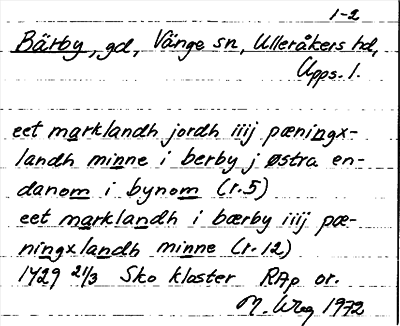 1-2
Bärby, gd, Vänge sn, Ulleråkers hd,
Upps. l.
eet marklandh jordh iiij pæningx-
landh minne i berby j østra en-
danom i bynom (r.5)
eet marklandh i bærby iiij pæ-
ningxlandh minne (r.12)
1429 21/3 Sko kloster RAp or.
M. 1972